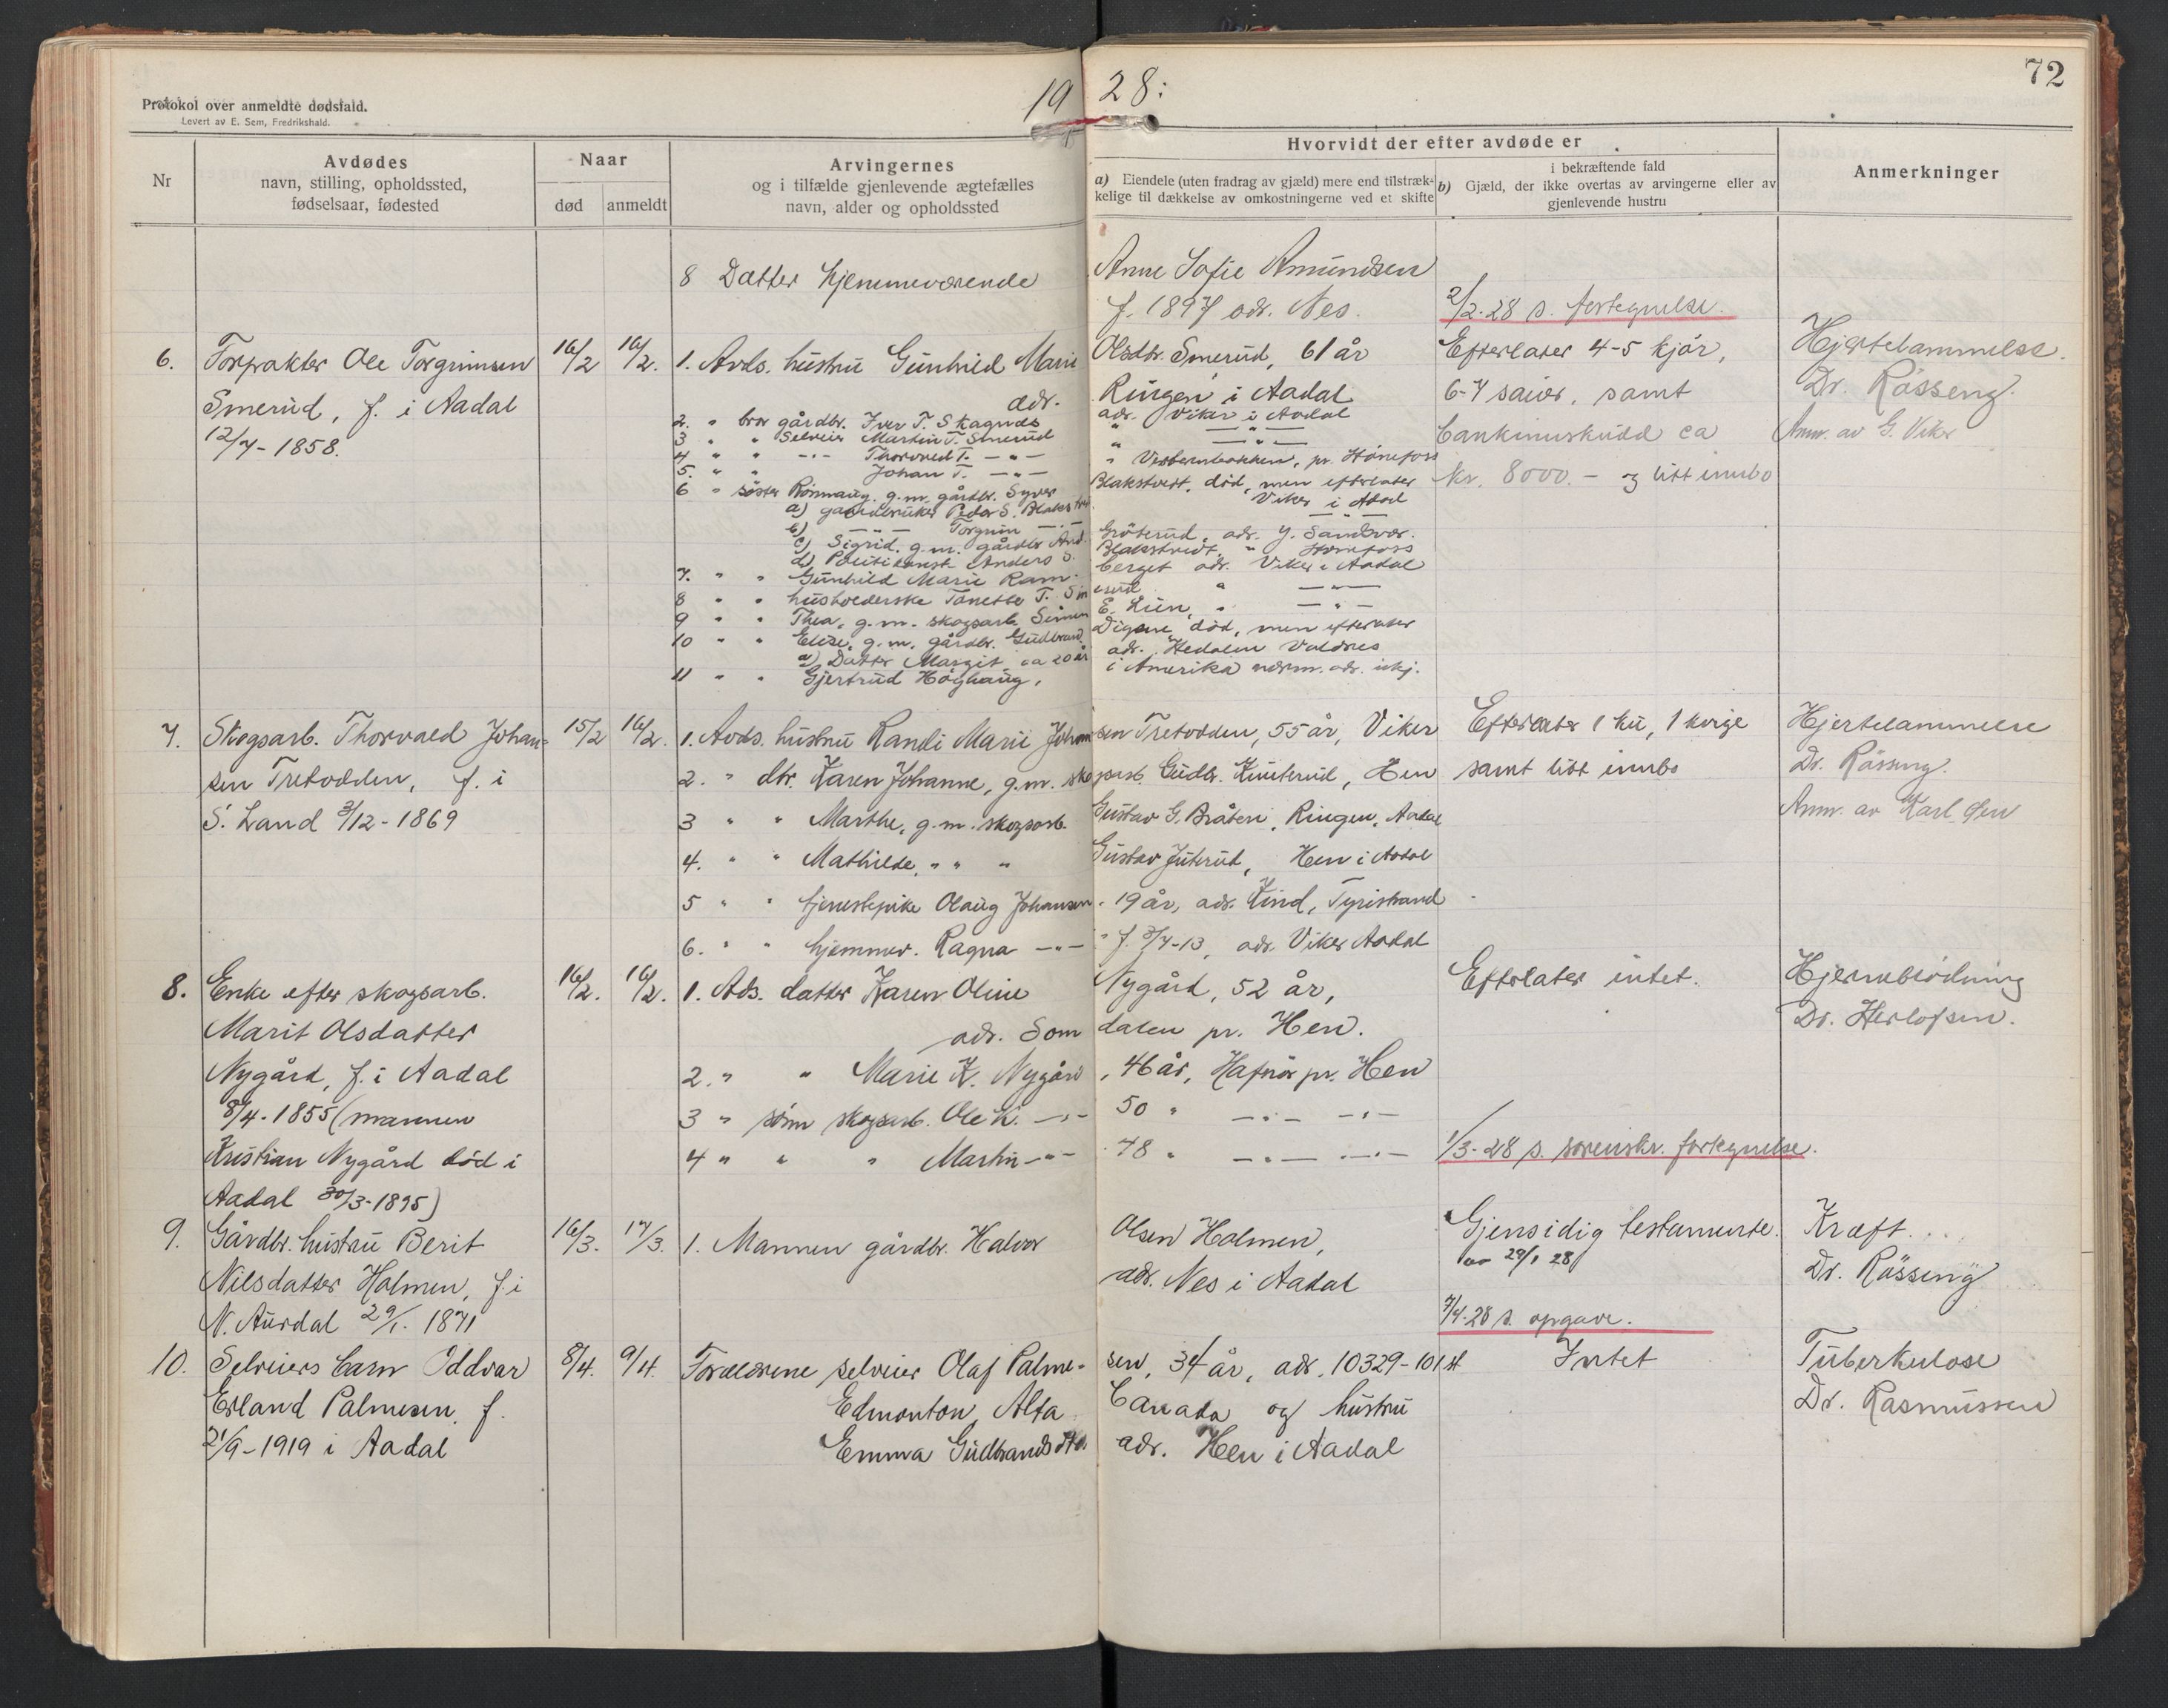 Protokol over anmeldte dødsfald.
Levert av E. Sem, Fredrikshald.
1928:
72
Nr
Avdødes
navn, stilling, opholdssted,
fødselsaar, fødested
Naar
død
anmeldt
Arvingernes
og i tilfælde gjenlevende ægtefælles
navn, alder og opholdssted
Hvorvidt der efter avdøde er
a) Eiendele (uten fradrag av gjæld) mere end tilstræk-
kelige til dækkelse av omkostningerne ved et skifte
i bekræftende fald
b) Gjæld, der ikke overtas av arvingerne eller av
gjenlevende hustru
Anmerkninger
8 Datter hjemmeværende Anne Sofie Amundsen
f. 1897 adr. Nes.
2/2-28 s. fortegnelse.
6.
Forpakter Ole Torgrimsen
Smerud, f. i Aadal
12/7-1858.
16/2
16/2.
1. Avds. hustru Gunhild Marie Olsdtr. Smerud, 61 år
adr. Ringen i Aadal
2. " bror gårdbr. Iver T. Skagnæs adr. Viker i Aadal
3 " " Selveier Martin T. Smerud " —"—
4 " " —"— Thorvald T. —"— " , pr. Hönefoss
5. " " Johan T. —"—
6 " söster Rönnaug, g.m. gårdbr. Syver Blakstvedt, död, men efterlater
a) gaardbruker Peder S. Blakstvedt Viker i Aadal
b) —"— Torgrim —"— —"—
c) Sigrid, g.m. gårdbr. And. Gröterud, adr. Y. Sandvær.
d) Politikonst. Anders S. Blakstvedt, " Hönefoss
7. " " Gunhild Marie Ramberget adr. Viker i Aadal
8 " " husholderske Tonette T. Smerud " —"—
9 " " Thea, g.m. skogsarb. Simen E. Lien, " —"—
10 " " Elise, g.m. gårdbr. Gudbrand Digene, död, men efterlater
a) Datter Margit, ca 20 år adr. Hedalen Valdres
11 " " Gjertrud Höghaug, i Amerika nærm. adr. ikj.
Efterlater 4-5 kjör,
6-7 sauer, samt
bankinnskudd ca
Kr. 8000.- og litt innbo
Hjertelammelse.
Dr. Rösseng.
Anm. av G. Viker
7.
Skogsarb. Thorvald Johan-
sen Tretvedden, f. i
S. Land 3/12-1869
15/2
16/2.
1. Avds. hustru Randi Marie Johansen Tretvodden, 55 år, Viker
2. " dtr. Karen Johanne, g.m. skogsarb. Gudbr. Knuterud, Hen
3 " " Marthe, g.m. skogsarb. Gustav G. Bråten, Ringen, Aadal
4. " " Mathilde, " " " Gustav Juterud, Hen i Aadal
5 " " tjenestepike Olaug Johansen. 19 år, adr. Kind, Tyristrand
6. " " hjemmev. Ragna —"— f. 3/7-13, adr. Viker Aadal
Efterlater 1 ku, 1 kvige
samt litt innbo
Hjertelammelse
Dr. Rösseng.
Anm. av Karl Gen
8.
Enke efter skogsarb.
Marit Olsdatter
Nygård, f. i Aadal
8/4-1855 (mannen
Kristian Nygård död i
Aadal 30/3-1895)
16/2.
16/2.
1. Ads. datter Karen Oline Nygård, 52 år,
adr. Somdalen pr. Hen.
2. " " Marie K. Nygård, 46 år, Hafnör pr. Hen
3 " sönn skogsarb. Ole K. —"— 50 " —"— —"—
4 " " " Martin —"— 48 " —"— —"—
Efterlater intet.
1/3-28 s. sorenskr. fortegnelse.
Hjerneblödning
Dr. Herlofsen.
9.
Gårdbr. hustru Berit
Nilsdatter Holmen, f. i
N. Aurdal 29/1. 1871
16/3.
17/3.
1. Mannen gårdbr. Halvor Olsen Holmen,
adr. Nes i Aadal
Gjensidig testamente.
av 29/1 28
7/4-28 s. opgave.
Kræft...
Dr. Rösseng
10.
Selveiers barn Oddvar
Erland Palmesen, f.
21/9-1919 i Aadal
8/4.
9/4.
Forældrene selveier Olaf Palmesen, 34 år, adr. 10329-101 st
Edmonton, Alta Canada og hustru
Emma Gudbrandsdtr. adr. Hen i Aadal
Intet
Tuberkulose
Dr. Rasmussen